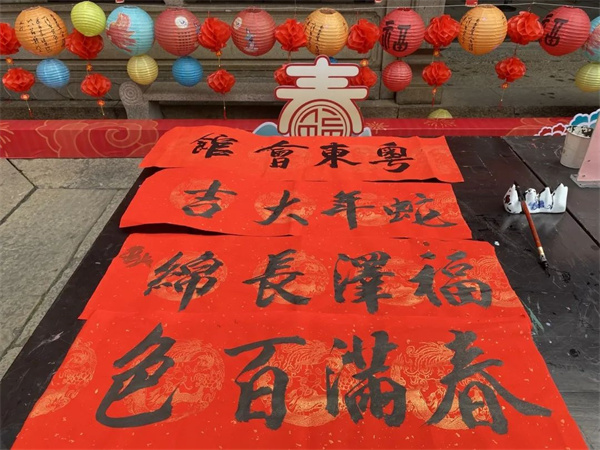 春
粵東會館
蛇年大吉
福澤長綿
春滿百色